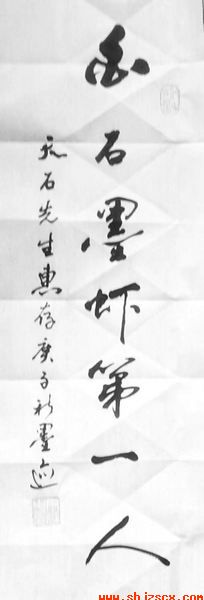 石墨虾第一人
石先生惠存庚子墨迹
www.shjzscx.com